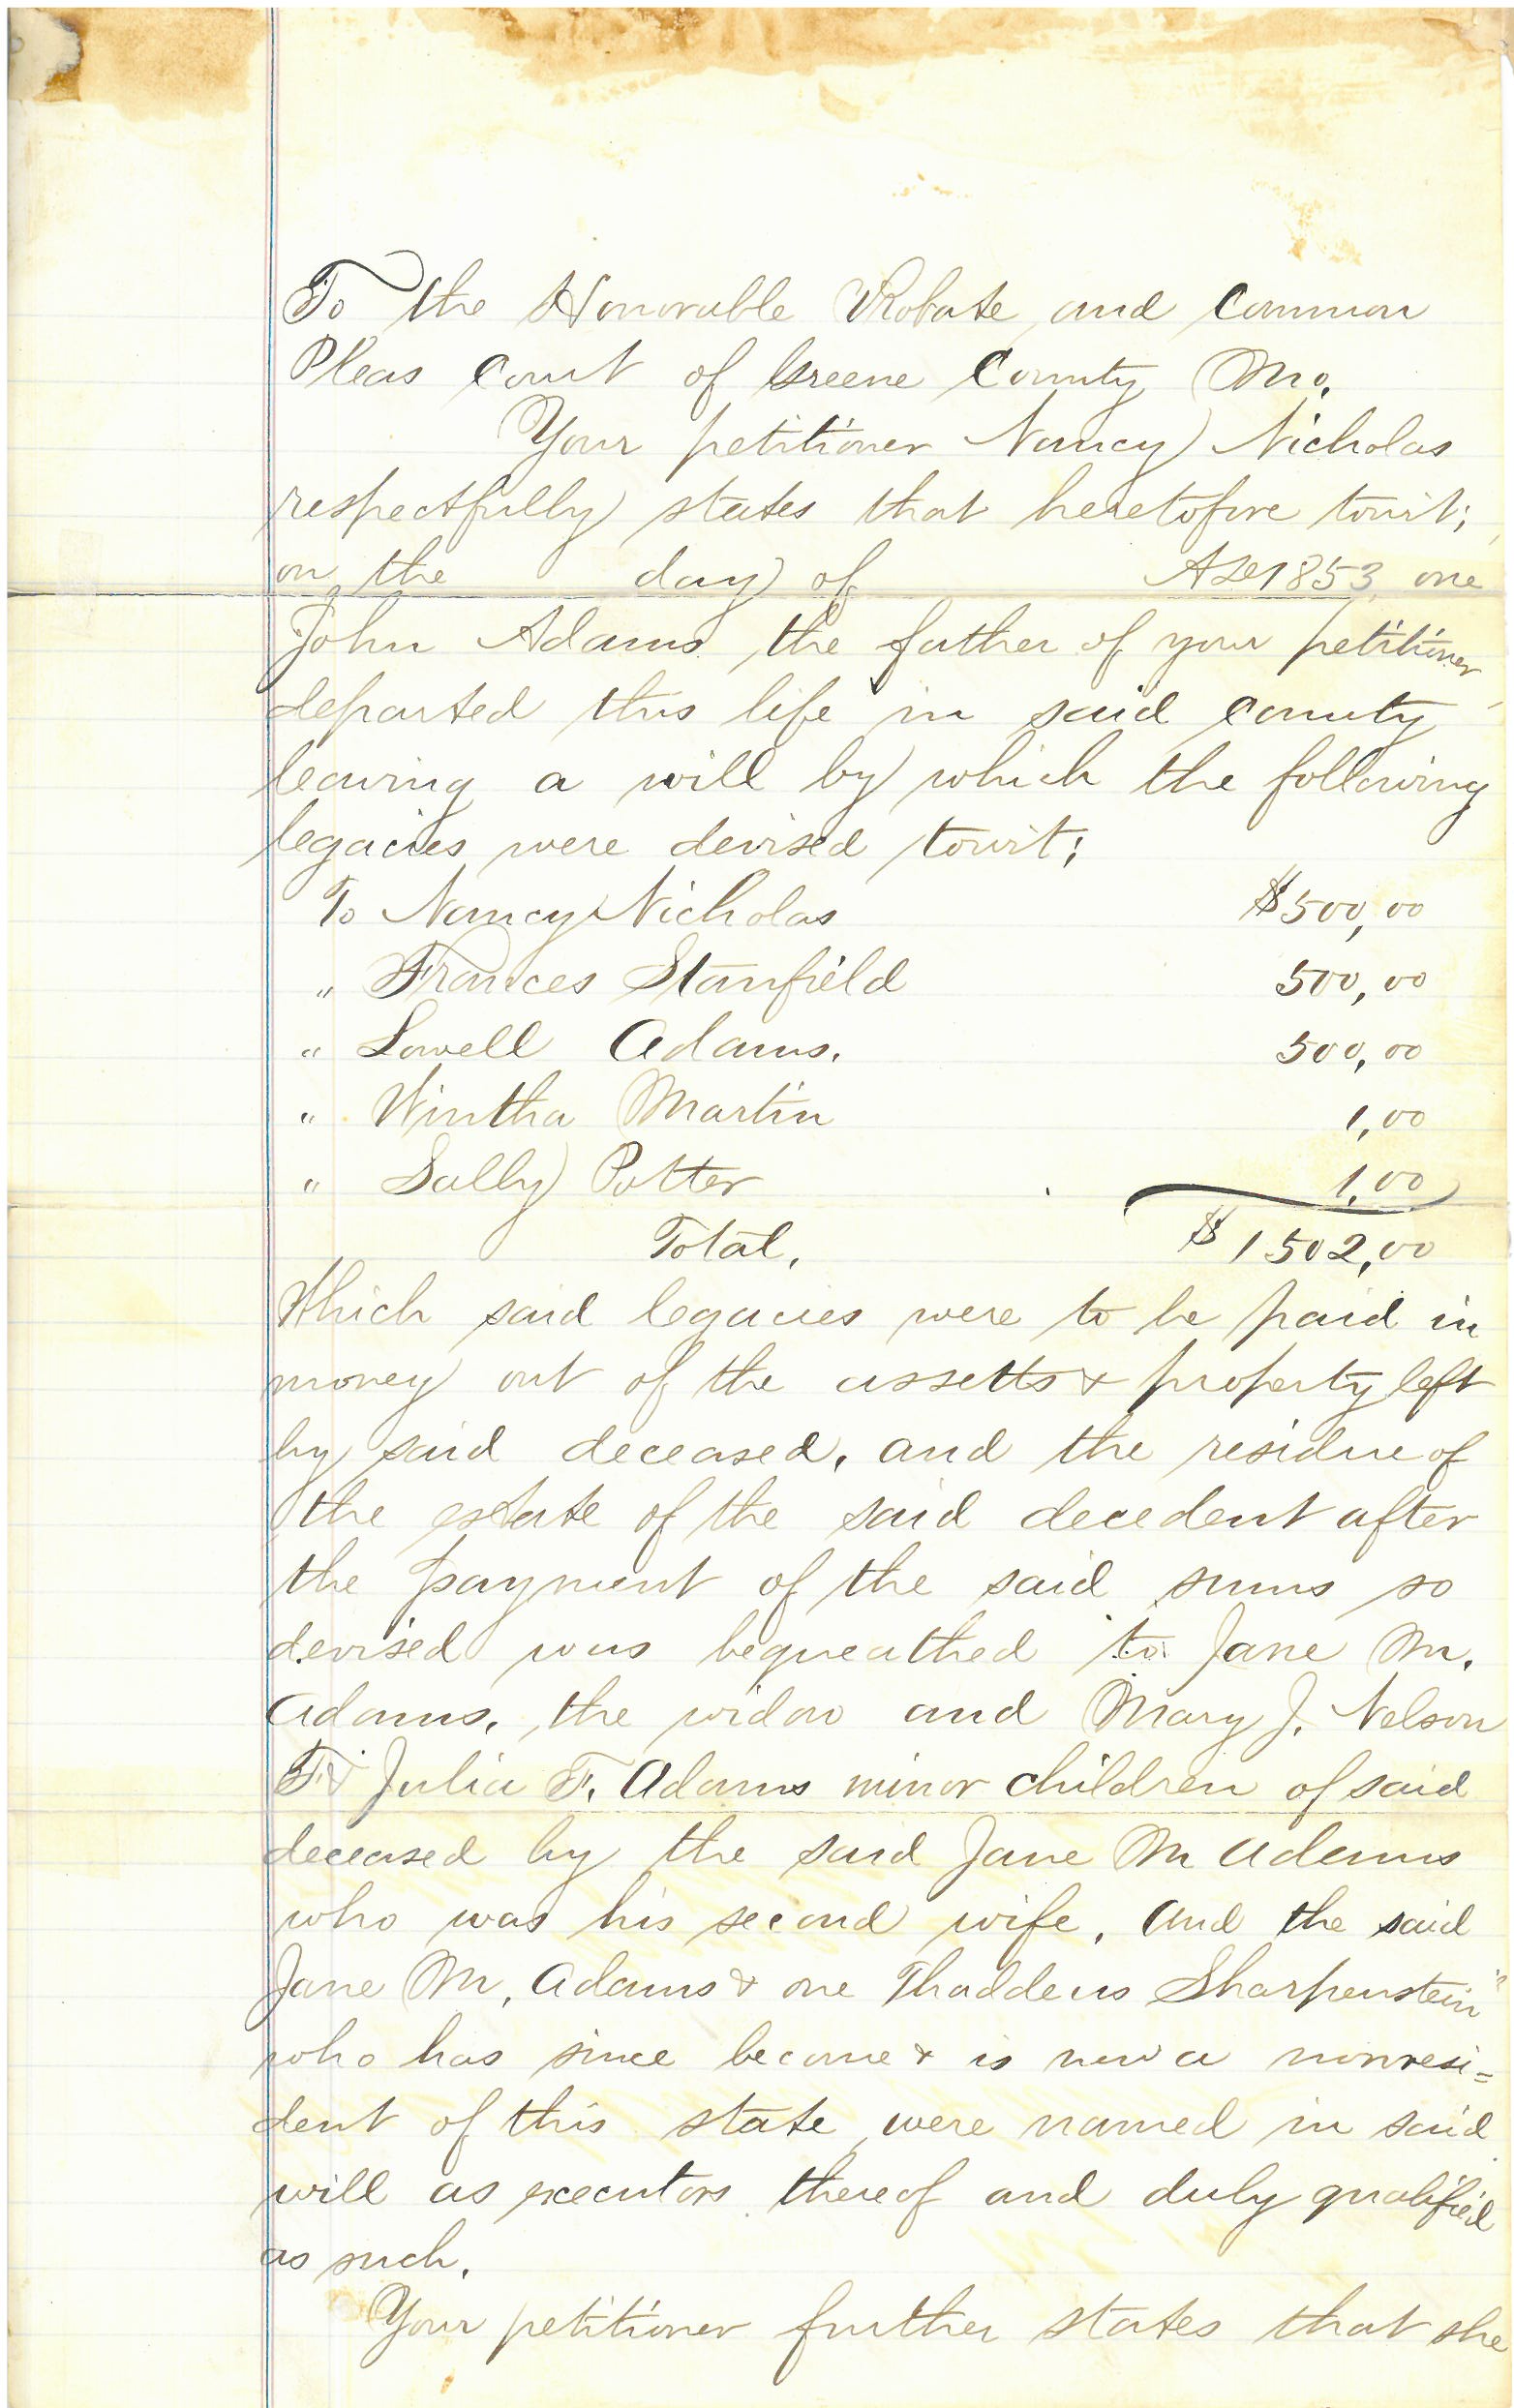 To the Honorable Probate and Common
Pleas Court of Greene County Mo.
Your petitioner Nancy Nicholas
respectfully states that heretofore towit;
on the day of AD 1853, one
John Adams, the father of your petitioner
departed this life in said county
leaving a will by which the following
legacies were devised towit;
To Nancy Nicholas $500,00
" Frances Stanfield 500,00
" Lowell Adams. 500,00
" Wintha Martin 1,00
" Sally Potter 1,00
Total, $1502,00
Which said legacies were to be paid in
money out of the assetts & property left
by said deceased, and the residue of
the estate of the said decedent after
the payment of the said sums so
devised was bequeathed to Jane M.
Adams, the widow and Mary J. Nelson
Julia F. Adams minor children of said
deceased by the said Jane M Adams
who was his second wife, and the said
Jane M, Adams & one Thaddeus Sharpenstein
who has since become & is now a nonresi=
dent of this state were named in said
will as executors thereof and duly qualified
as such.
Your petitioner further states that she